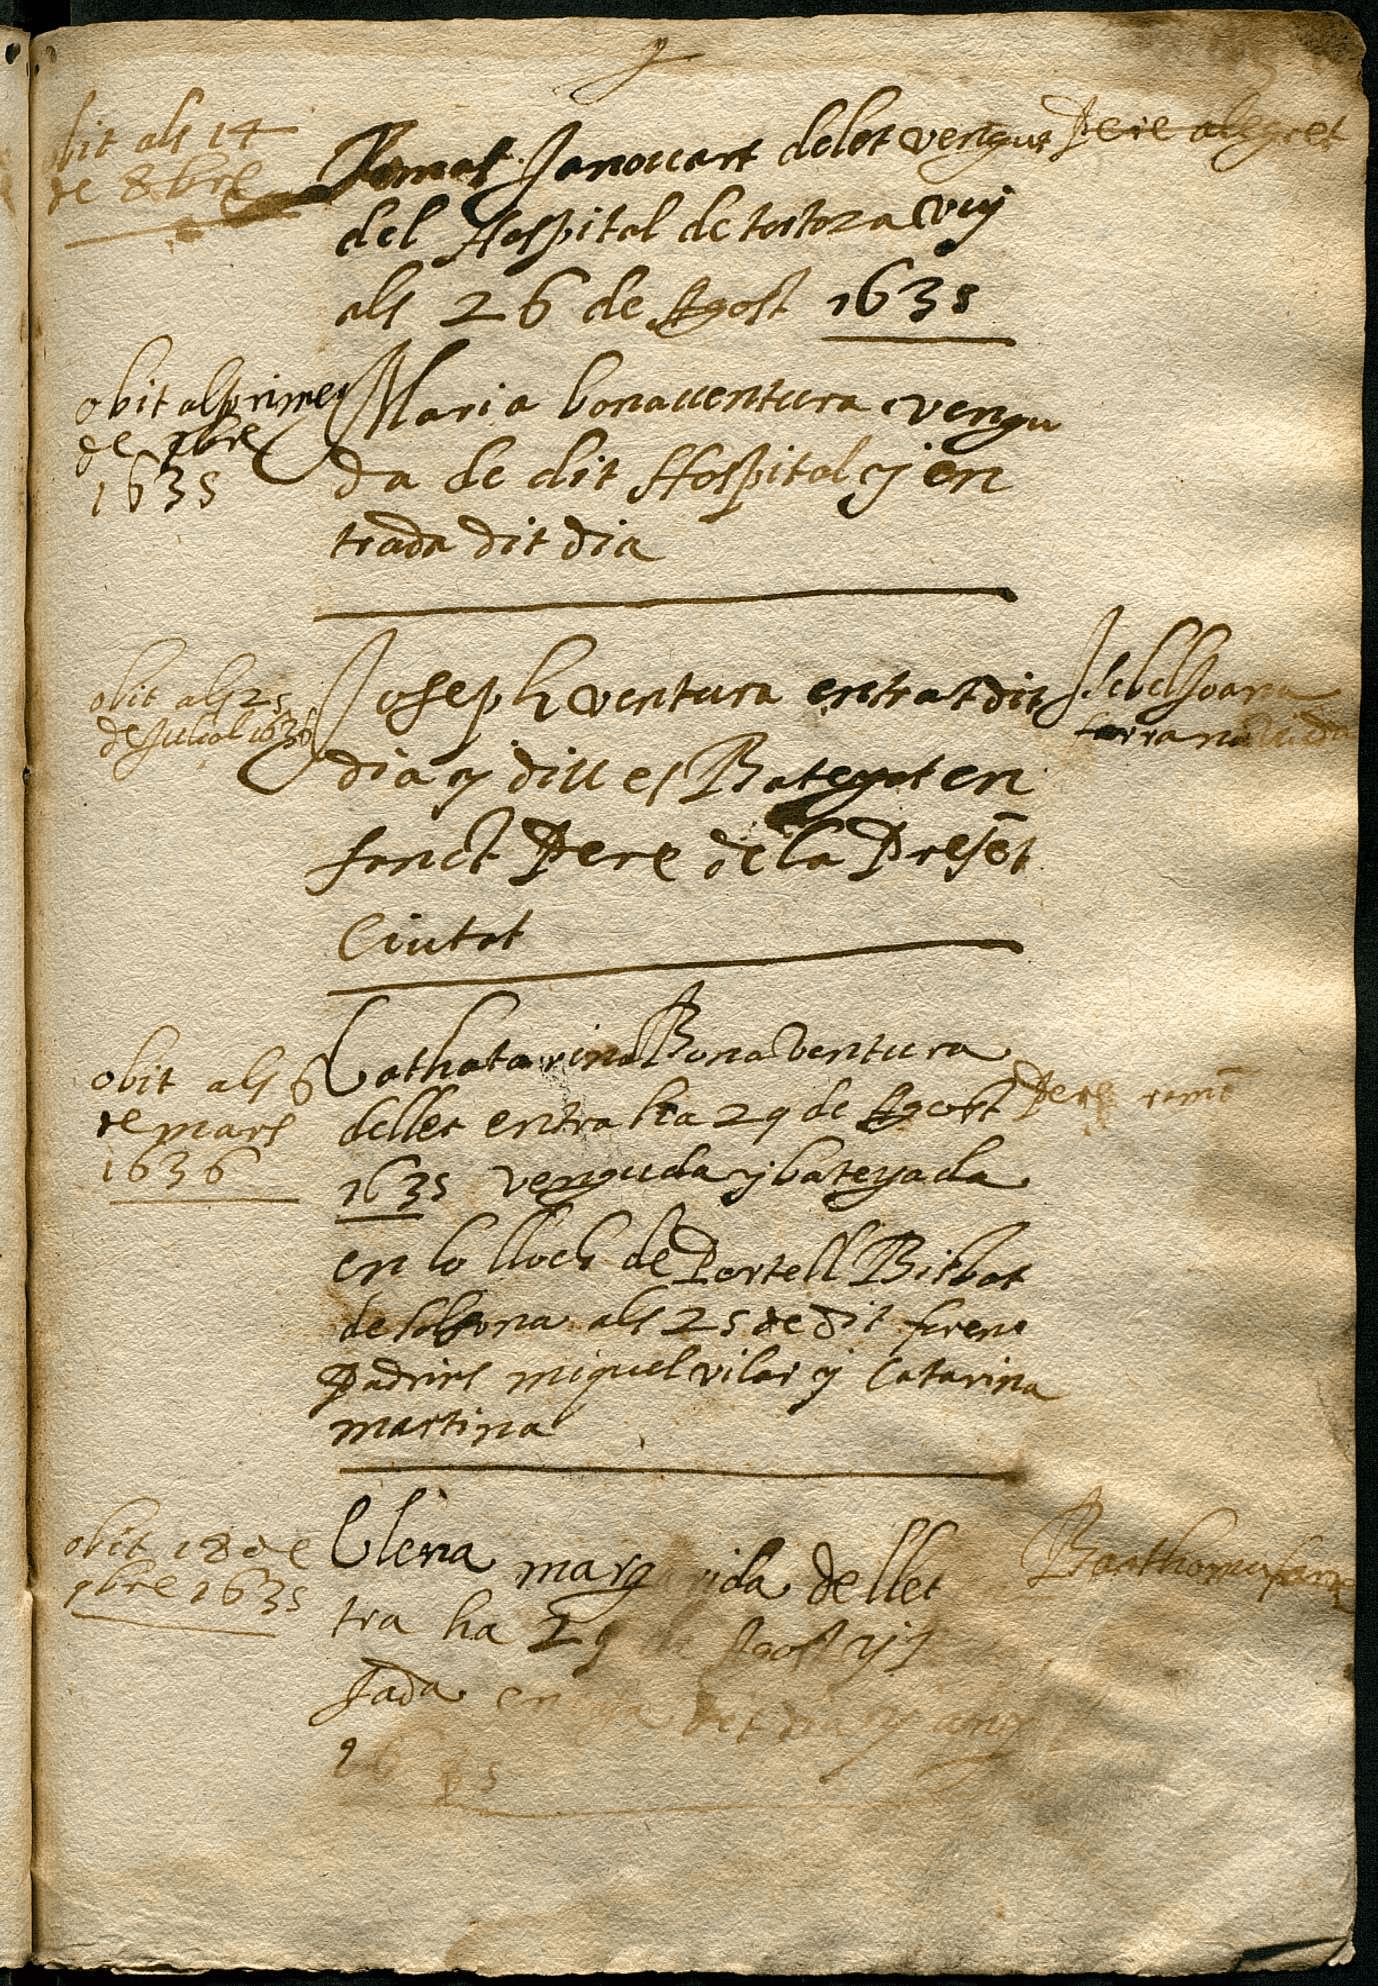 obit als 14
de 8bre
Tomas Janouart delet vengut Pere alegret
del Hospital de tortoza vuy
als 26 de Agost 1635
obit als primer
de 9bre
1635
Maria bonauentura vengu
da de dit Hospital y en
trada dit dia
obit als 25
de Juliol 1636
Joseph ventura entrat dit
dia y diu es Bateyat en
sanct Pere de la Presēt
Ciutat
Isebel Joana
obit als 6
de mars
1636
Cathatarina Bonaventura
dellet entra ha 29 de Agost
1635 venguda y bateyada
en lo lloch de Portell Bisbat
de solsona als 25 de dit foren
Padrins miquel vilar y Catarina
martina
Pere
obit 18 de
9bre 1635
Elena margarida dellet
tra ha 29 de Agost y
jada en dit dia y any
1635
Barthomeu